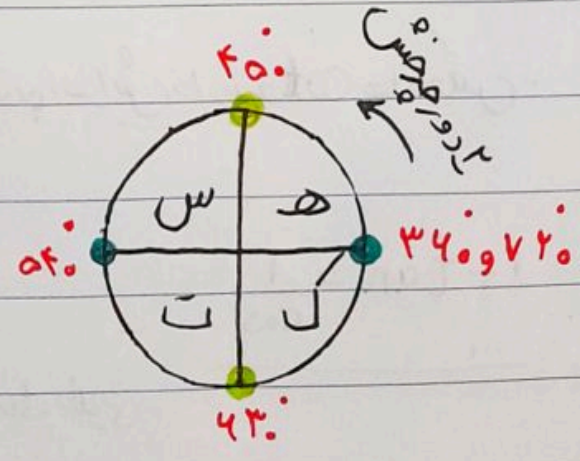 ۴۵۰°
۲ دور چرخش
س ه
۵۴۰° ۳۶۰° و ۷۲۰°
ت ل
۶۳۰°